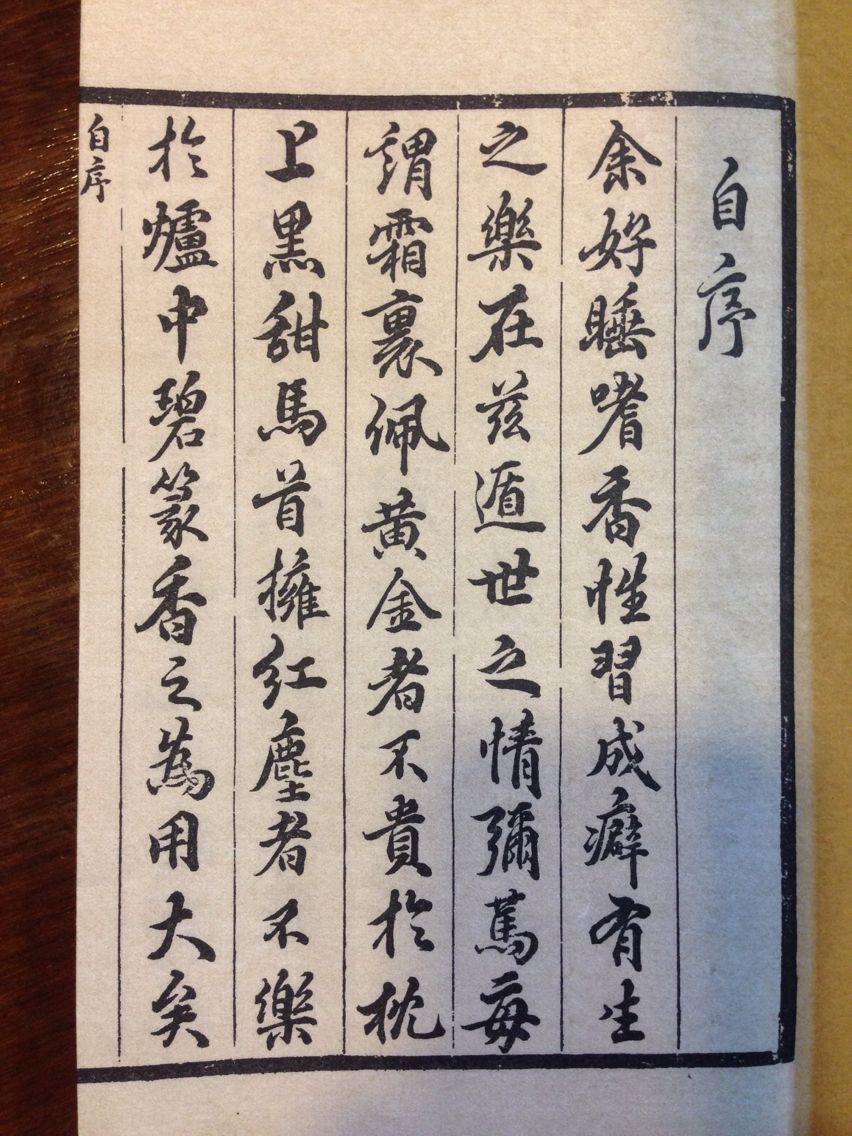 自序
余好睡嗜香性習成癖有生
之樂在茲遁世之情彌篤每
謂霜裏佩黃金者不貴於枕
上黑甜馬首擁紅塵者不樂
於爐中碧篆香之為用大矣
自序